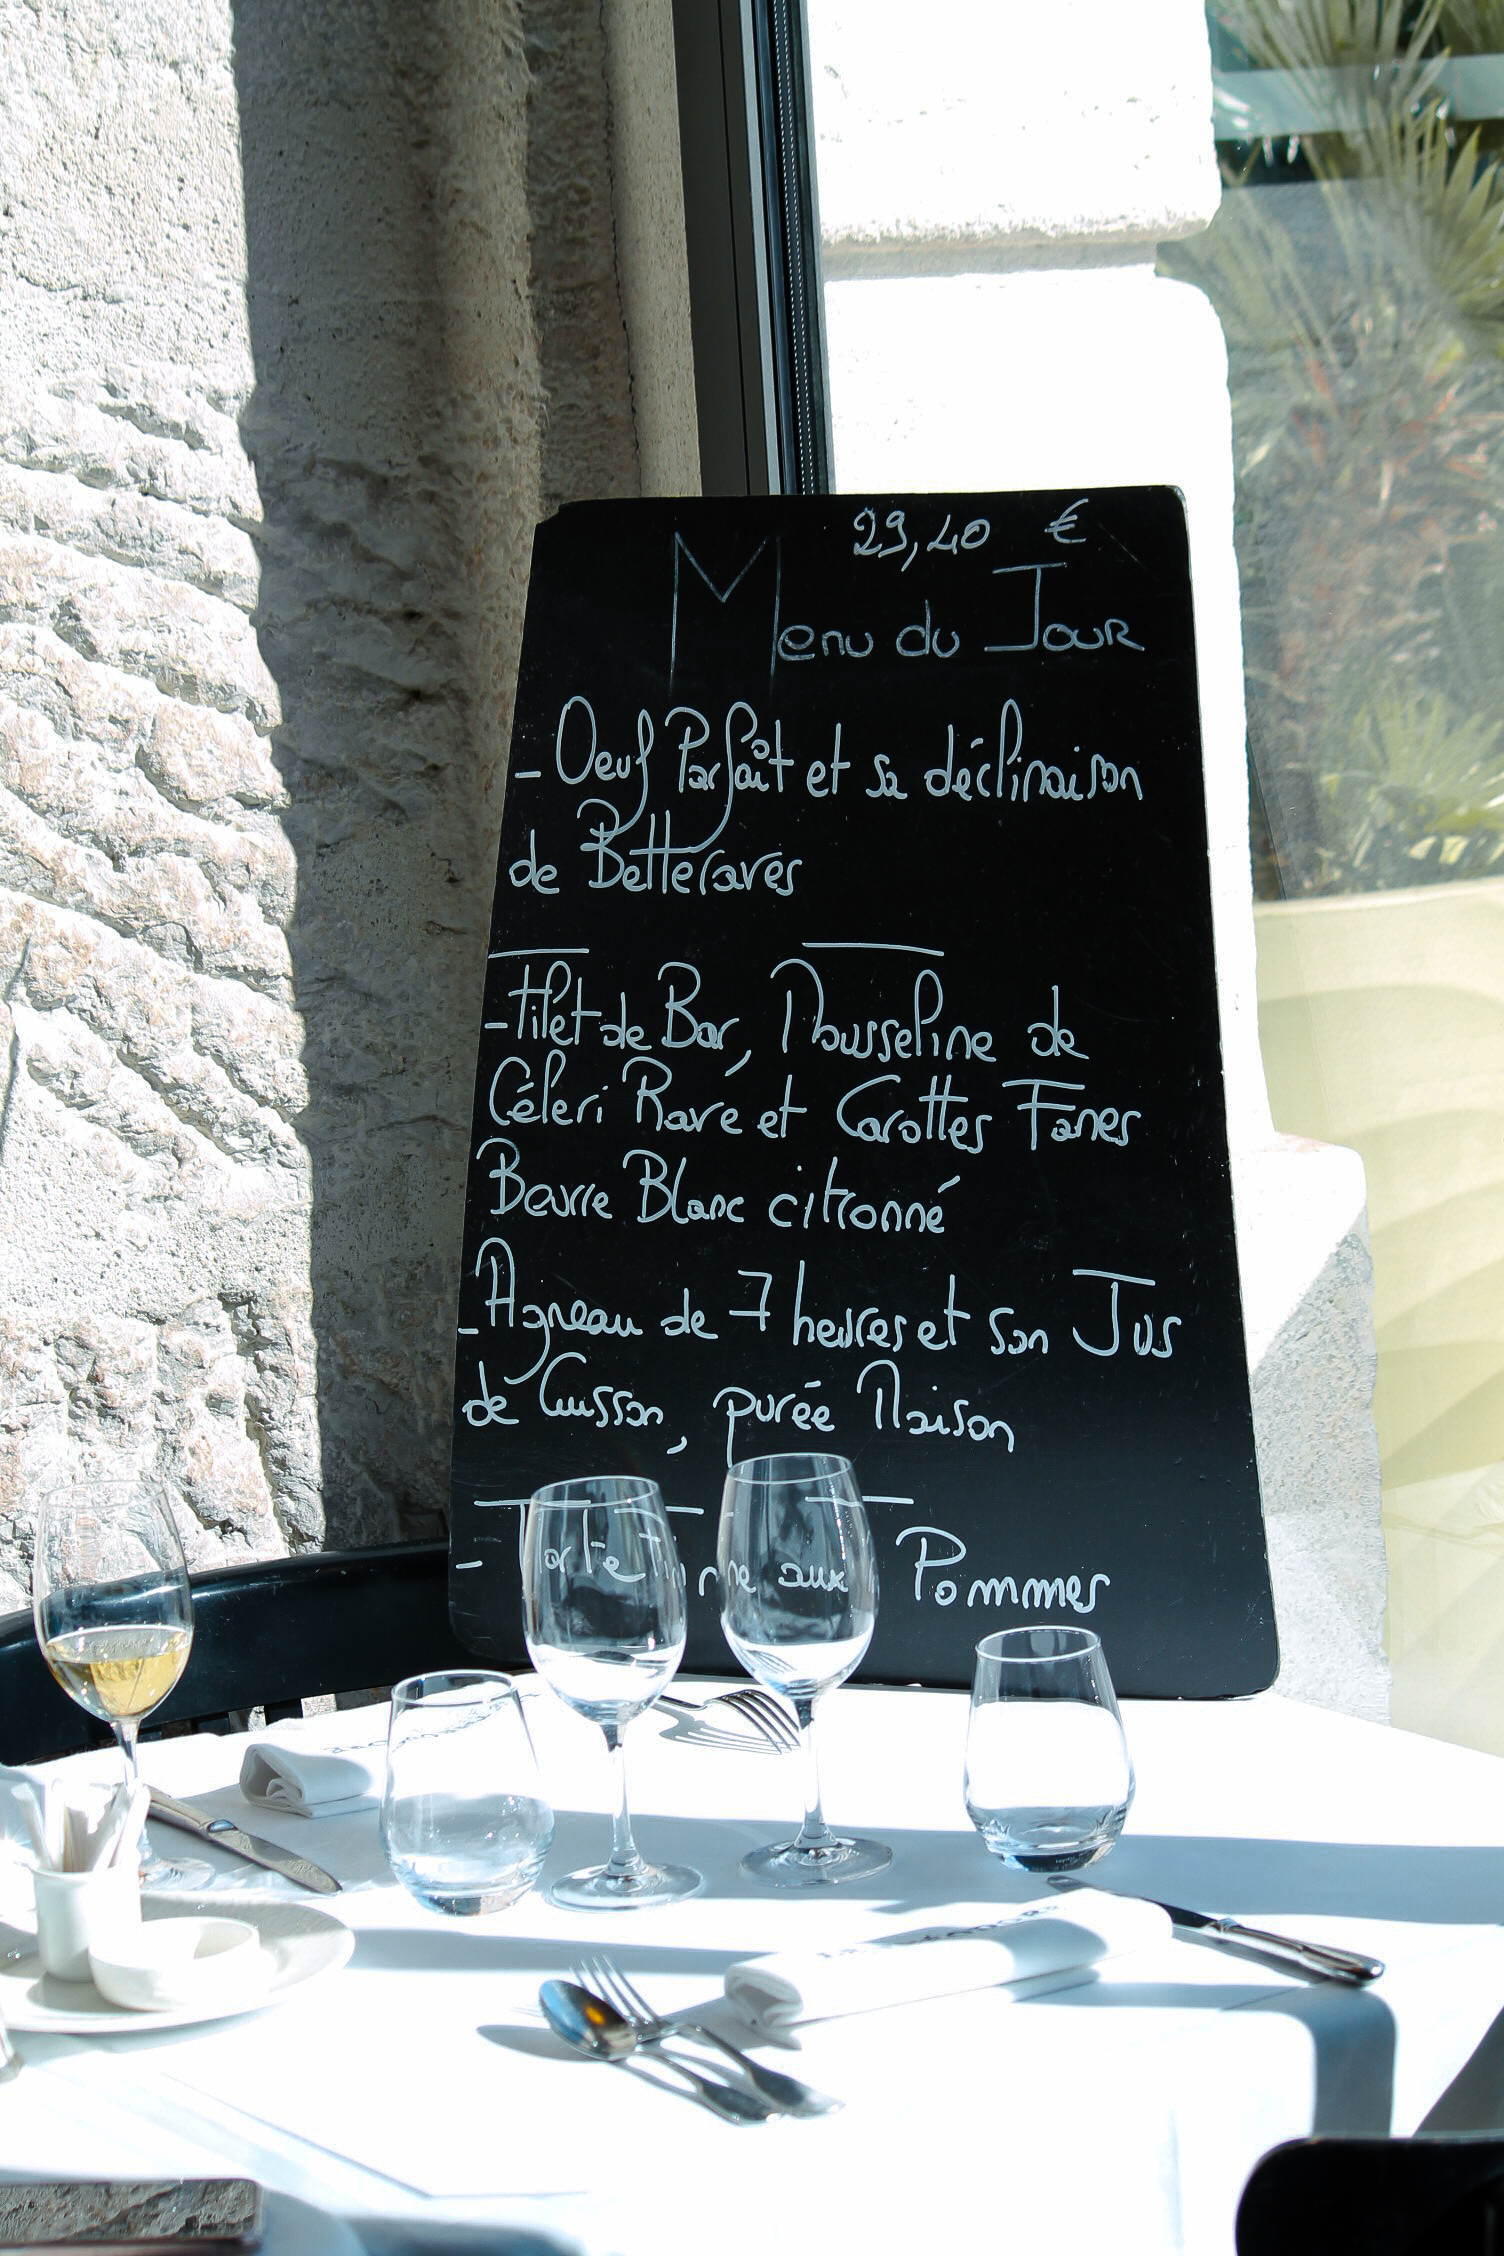 29,40 €
Menu du Jour
- Oeuf Parfait et sa déclinaison
de Betteraves
- Filet de Bar, Mousseline de
Céleri Rave et Carottes Fanes
Beurre Blanc citronné
- Agneau de 7 heures et son Jus
de Cuisson, purée Maison
- Tarte Fine aux Pommes